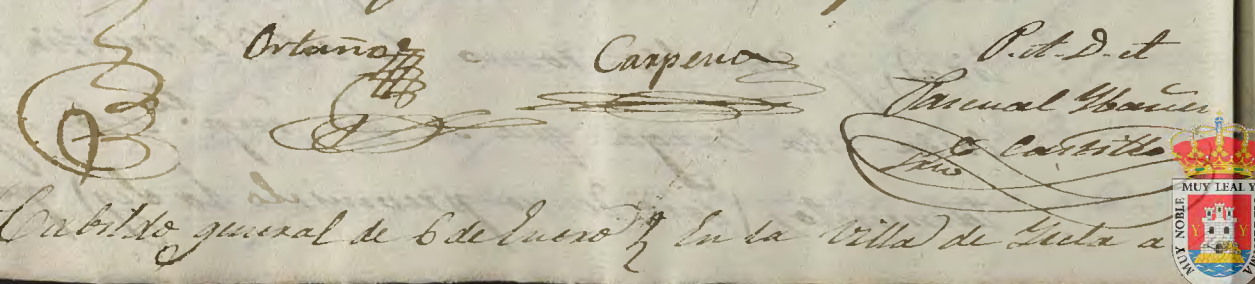 Ortuño Carpena P. A. D. A.
Pascual Ybañez
Castillo
Srio
Cabildo general de 6 de Enero } En la Villa de Yecla a
MUY NOBLE MUY LEAL Y
Y Y